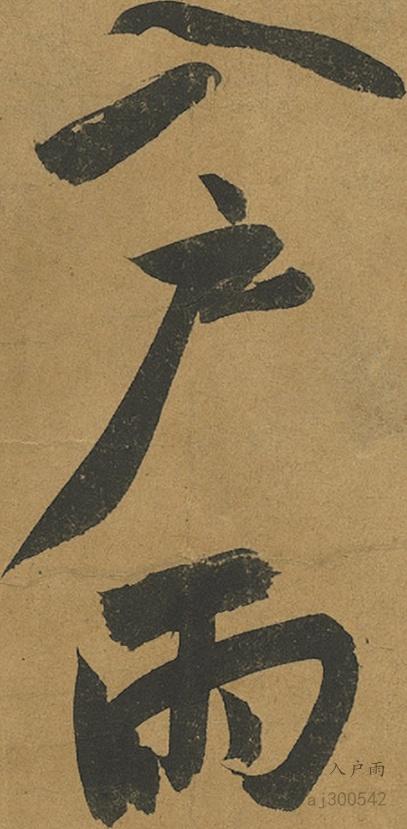 入户雨
入户雨
aj300542